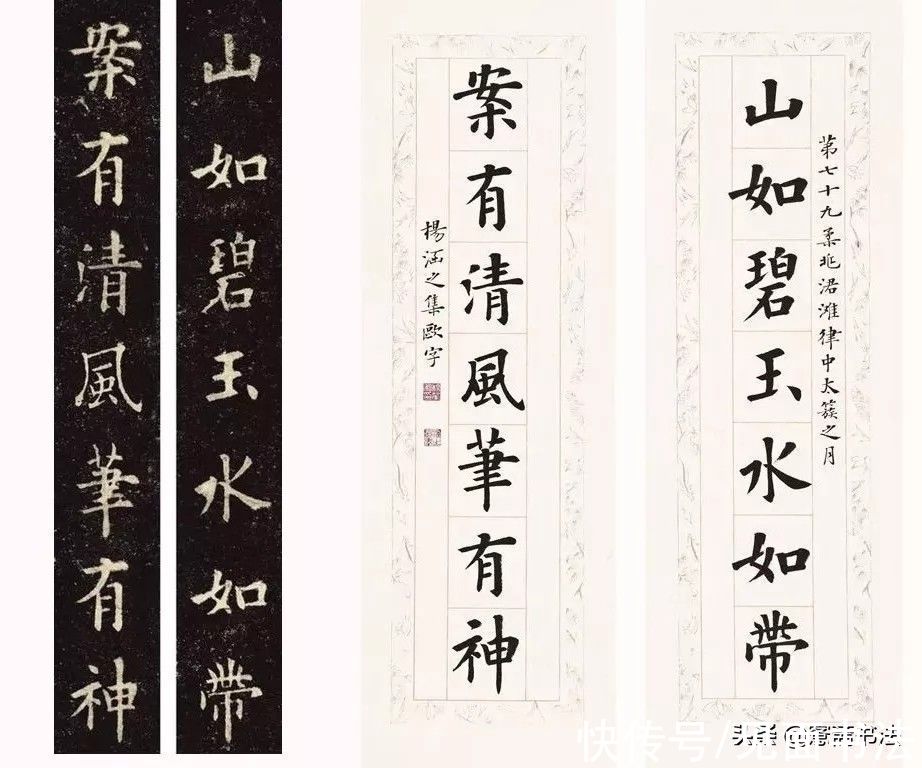 山如碧玉水如帶
第七十九柔兆涒滩律中太簇之月
案有清風筆有神
楊涵之集歐字
山如碧玉水如帶
案有清風筆有神
快传号/
头条 @
书法